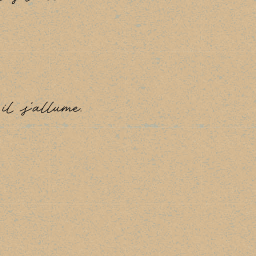 il s'allume.